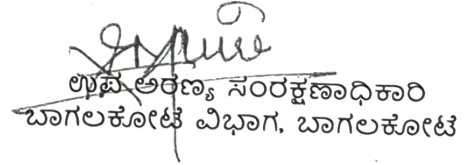 ಉಪ ಅರಣ್ಯ ಸಂರಕ್ಷಣಾಧಿಕಾರಿ
ಬಾಗಲಕೋಟೆ ವಿಭಾಗ, ಬಾಗಲಕೋಟೆ